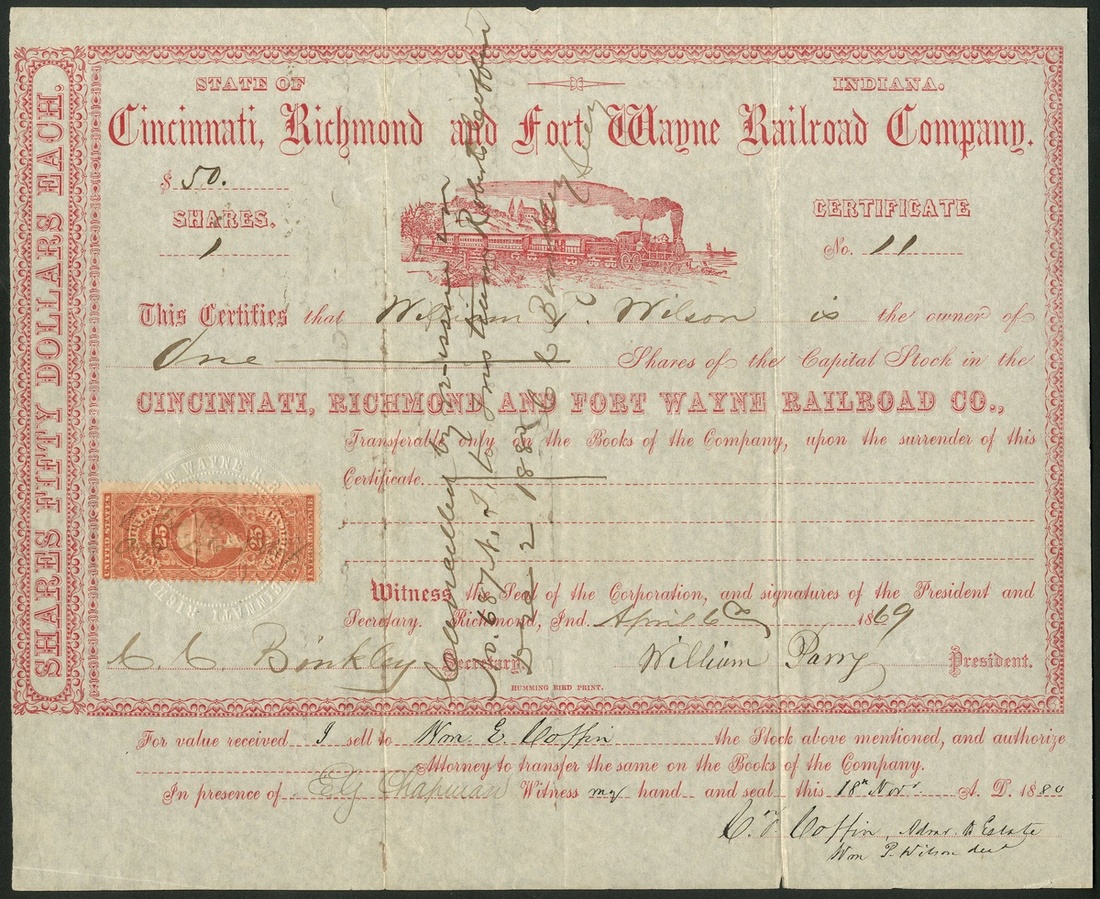 SHARES FIFTY DOLLARS EACH.
STATE OF INDIANA.
Cincinnati, Richmond and Fort Wayne Railroad Company.
$ 50.
SHARES.
1
CERTIFICATE
No. 11
This Certifies that William P. Wilson is the owner of
One Shares of the Capital Stock in the
CINCINNATI, RICHMOND AND FORT WAYNE RAILROAD CO.,
Transferable only on the Books of the Company, upon the surrender of this
Certificate.
25 25
Witness the Seal of the Corporation, and signatures of the President and
Secretary. Richmond, Ind. April 6th 1869
C. C. Binkley Secretary William Parry President.
HUMMING BIRD PRINT.
Cancelled by re-issue in
No. 687 to
Dec 2 1880 C C Binkley Secy
For value received I sell to Wm. E. Coffin the Stock above mentioned, and authorize
Attorney to transfer the same on the Books of the Company.
In presence of Chapman Witness my hand and seal this 18th Nov. A. D. 1880
C. F. Coffin, Admr. Estate
Wm P. Wilson decd